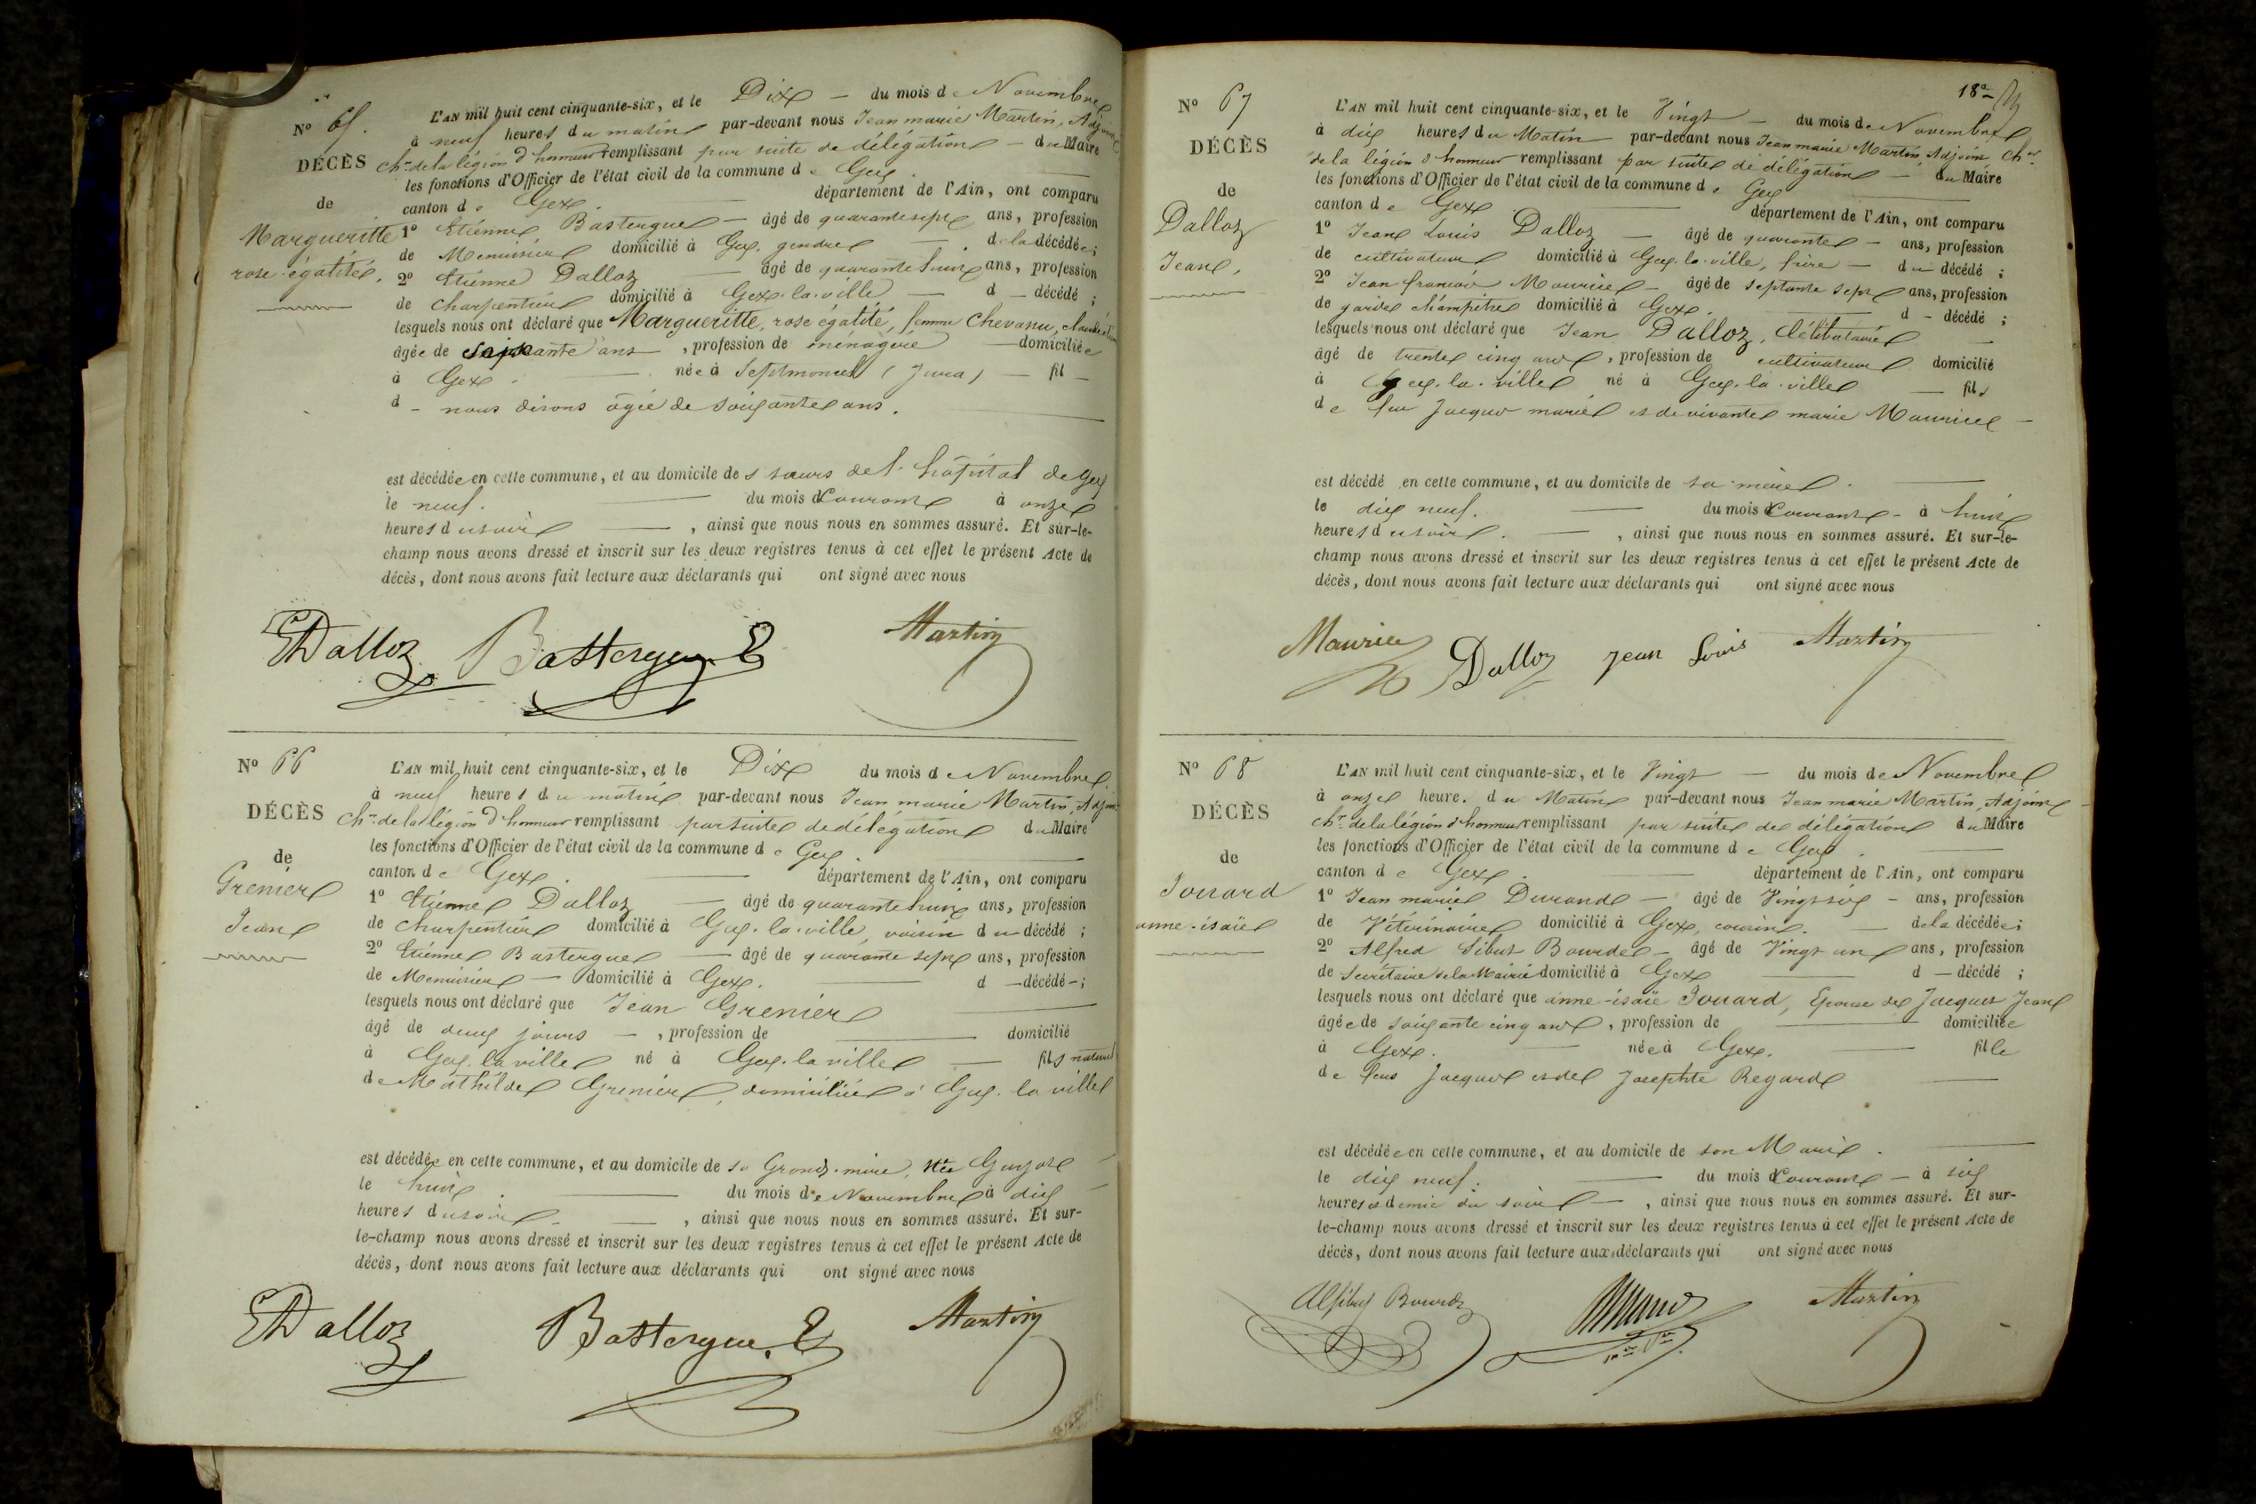 N° 65.
DÉCÈS
de
Margueritte
rose égalité.
L'AN mil huit cent cinquante-six, et le Dix — du mois de Novembre
à neuf heures du matin par-devant nous Jean marie Martin, Adjoint
chr de la légion d'honneur remplissant par suite de délégation — du Maire
les fonctions d'Officier de l'état civil de la commune de Gex.
canton de Gex. département de l'Ain, ont comparu
1° Etienne Bastergue — âgé de quarante sept ans, profession
de Menuisier domicilié à Gex, gendre — de la décédée;
2° Etienne Dalloz — âgé de quarante huit ans, profession
de charpentier domicilié à Gex-la-ville — d — décédé;
lesquels nous ont déclaré que Margueritte, rose égalité, femme Chevanu,
âgée de ans, profession de ménagère — domiciliée
à Gex. née à Septmoncel (Jura) — fil —
d — nous disons âgée de soixante ans.
est décédée en cette commune, et au domicile des sœurs de l'hôpital de Gex
le neuf. du mois Courant à onze
heures du soir — , ainsi que nous nous en sommes assuré. Et sur-le-
champ nous avons dressé et inscrit sur les deux registres tenus à cet effet le présent Acte de
décès, dont nous avons fait lecture aux déclarants qui ont signé avec nous
EDalloz Bastergue E Martin
N° 66
DÉCÈS
de
Grenier
Jean
L'AN mil huit cent cinquante-six, et le Dix du mois de Novembre
à neuf heures du matin par-devant nous Jean marie Martin, Adjoint
chr de la légion d'honneur remplissant par suite de délégation du Maire
les fonctions d'Officier de l'état civil de la commune de Gex.
canton de Gex. département de l'Ain, ont comparu
1° Etienne Dalloz — âgé de quarante huit ans, profession
de charpentier domicilié à Gex-la-ville, voisin du décédé;
2° Etienne Bastergue — âgé de quarante sept ans, profession
de Menuisier — domicilié à Gex. d — décédé —;
lesquels nous ont déclaré que Jean Grenier
âgé de deux jours — , profession de — domicilié
à Gex-la-ville né à Gex-la-ville — fils naturel
de Mathilde Grenier, domiciliée à Gex-la-ville
est décédé en cette commune, et au domicile de sa Grand-mère, née Guyot
le huit. du mois de Novembre à dix
heures du soir. — , ainsi que nous nous en sommes assuré. Et sur-
le-champ nous avons dressé et inscrit sur les deux registres tenus à cet effet le présent Acte de
décès, dont nous avons fait lecture aux déclarants qui ont signé avec nous
EDalloz Bastergue. E Martin
18e
N° 67
DÉCÈS
de
Dalloz
Jean,
L'AN mil huit cent cinquante-six, et le Vingt — du mois de Novembre
à dix heures du Matin par-devant nous Jean marie Martin, Adjoint, chr
de la légion d'honneur remplissant par suite de délégation — du Maire
les fonctions d'Officier de l'état civil de la commune de Gex
canton de Gex département de l'Ain, ont comparu
1° Jean Louis Dalloz — âgé de quarante — ans, profession
de cultivateur domicilié à Gex-la-ville, frère — du décédé;
2° Jean françois Maurice — âgé de septante sept ans, profession
de garde champêtre domicilié à Gex. d — décédé;
lesquels nous ont déclaré que Jean Dalloz, Célibataire
âgé de trente cinq ans, profession de cultivateur domicilié
à Gex-la-ville né à Gex-la-ville — fils
de feu Jacques marie et de vivante marie Maurice —
est décédé en cette commune, et au domicile de sa mère.
le dix neuf. du mois Courant — à huit
heures du soir. — , ainsi que nous nous en sommes assuré. Et sur-le-
champ nous avons dressé et inscrit sur les deux registres tenus à cet effet le présent Acte de
décès, dont nous avons fait lecture aux déclarants qui ont signé avec nous
Maurice Dalloz jean Louis Martin
N° 68
DÉCÈS
de
Jouard
anne-isaïe
L'AN mil huit cent cinquante-six, et le Vingt — du mois de Novembre
à onze heure. du Matin par-devant nous Jean marie Martin, Adjoint
chr de la légion d'honneur remplissant par suite de délégation du Maire
les fonctions d'Officier de l'état civil de la commune de Gex
canton de Gex. département de l'Ain, ont comparu
1° Jean marie Durand — âgé de Vingt six — ans, profession
de Vétérinaire domicilié à Gex, cousin. — de la décédée;
2° Alfred Sibut Bourde — âgé de Vingt un ans, profession
de Secrétaire de la Mairie domicilié à Gex d — décédé;
lesquels nous ont déclaré que anne-isaïe Jouard, Epouse de Jacques Jean
âgée de soixante cinq ans, profession de — domiciliée
à Gex. née à Gex. fille
de feus Jacques et de Josephte Regard
est décédée en cette commune, et au domicile de son Mari.
le dix neuf. du mois Courant — à six
heures et demie du soir — , ainsi que nous nous en sommes assuré. Et sur-
le-champ nous avons dressé et inscrit sur les deux registres tenus à cet effet le présent Acte de
décès, dont nous avons fait lecture aux déclarants qui ont signé avec nous
Martin